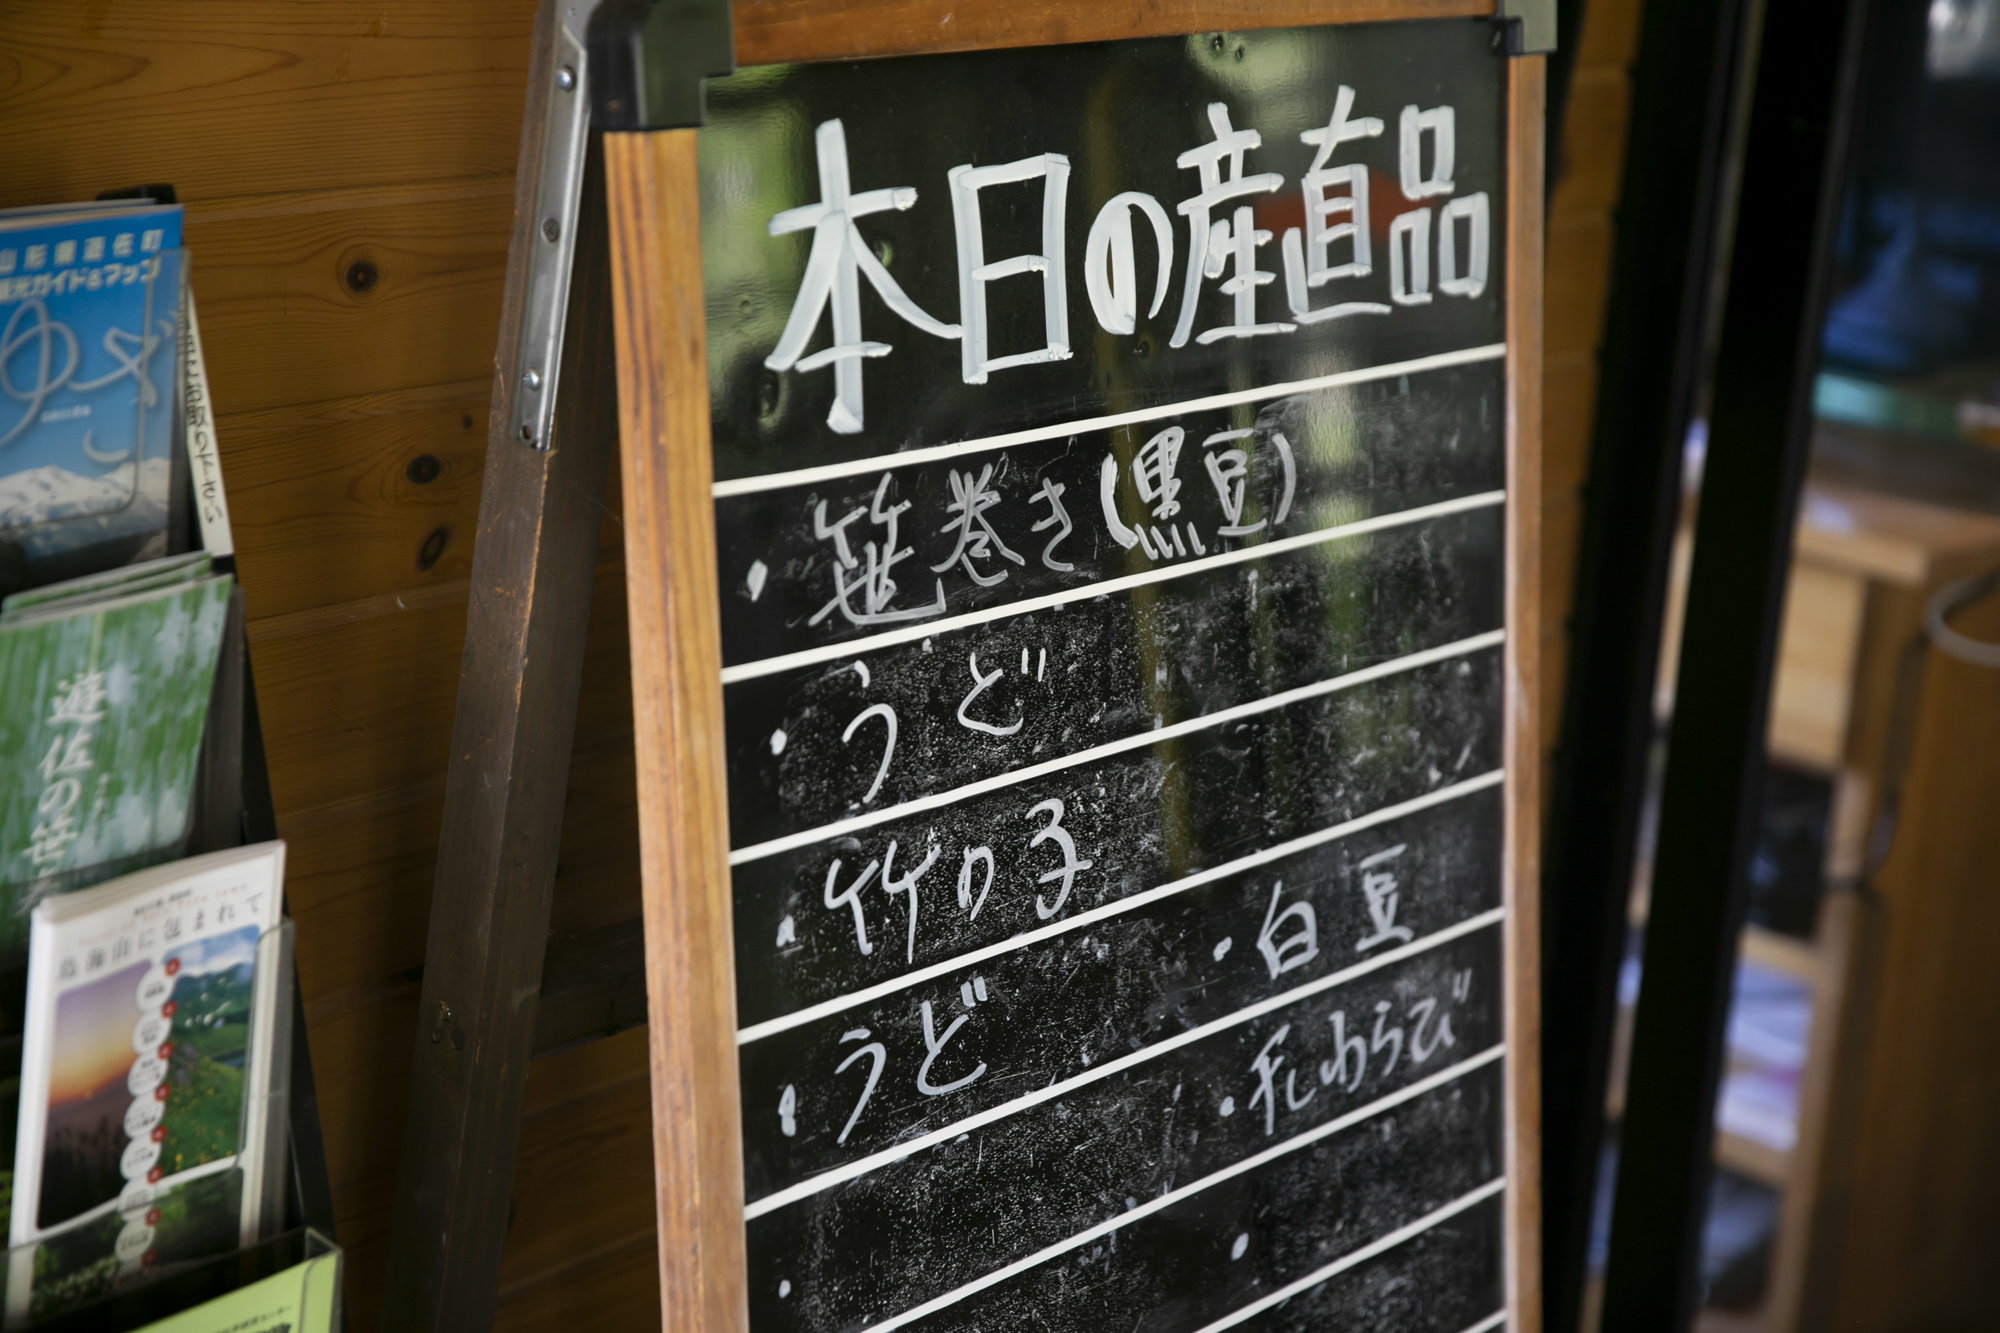 本日の産直品
・笹巻き(黒豆)
・うど
・竹の子
・うど
・白豆
・干しわらび
山形県遊佐町
観光ガイド&マップ
ゆざ
遊佐の
鳥海山に包まれて